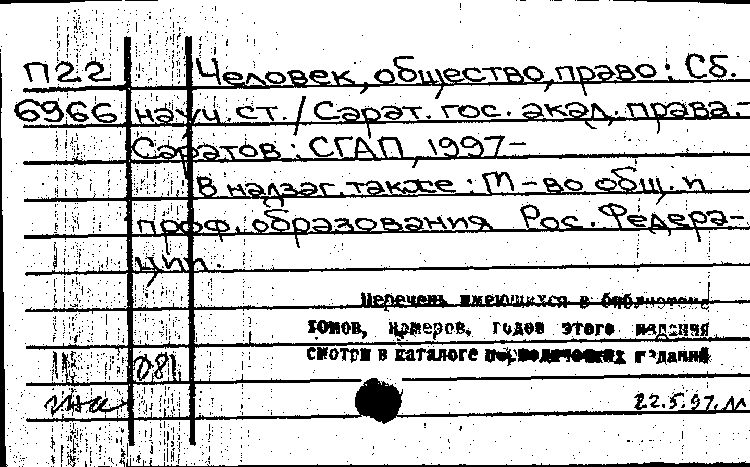 П22 Человек, общество, право: Сб.
6966 науч. ст. / Сарат. гос. акад. права.-
Саратов: СГАП, 1997-
В надзаг. также: М-во общ. и
проф. образования Рос. Федера-
ции.
Перечень имеющихся в библиотеке
томов, номеров, годов этого издания
смотри в каталоге периодических изданий
081
22.5.97.